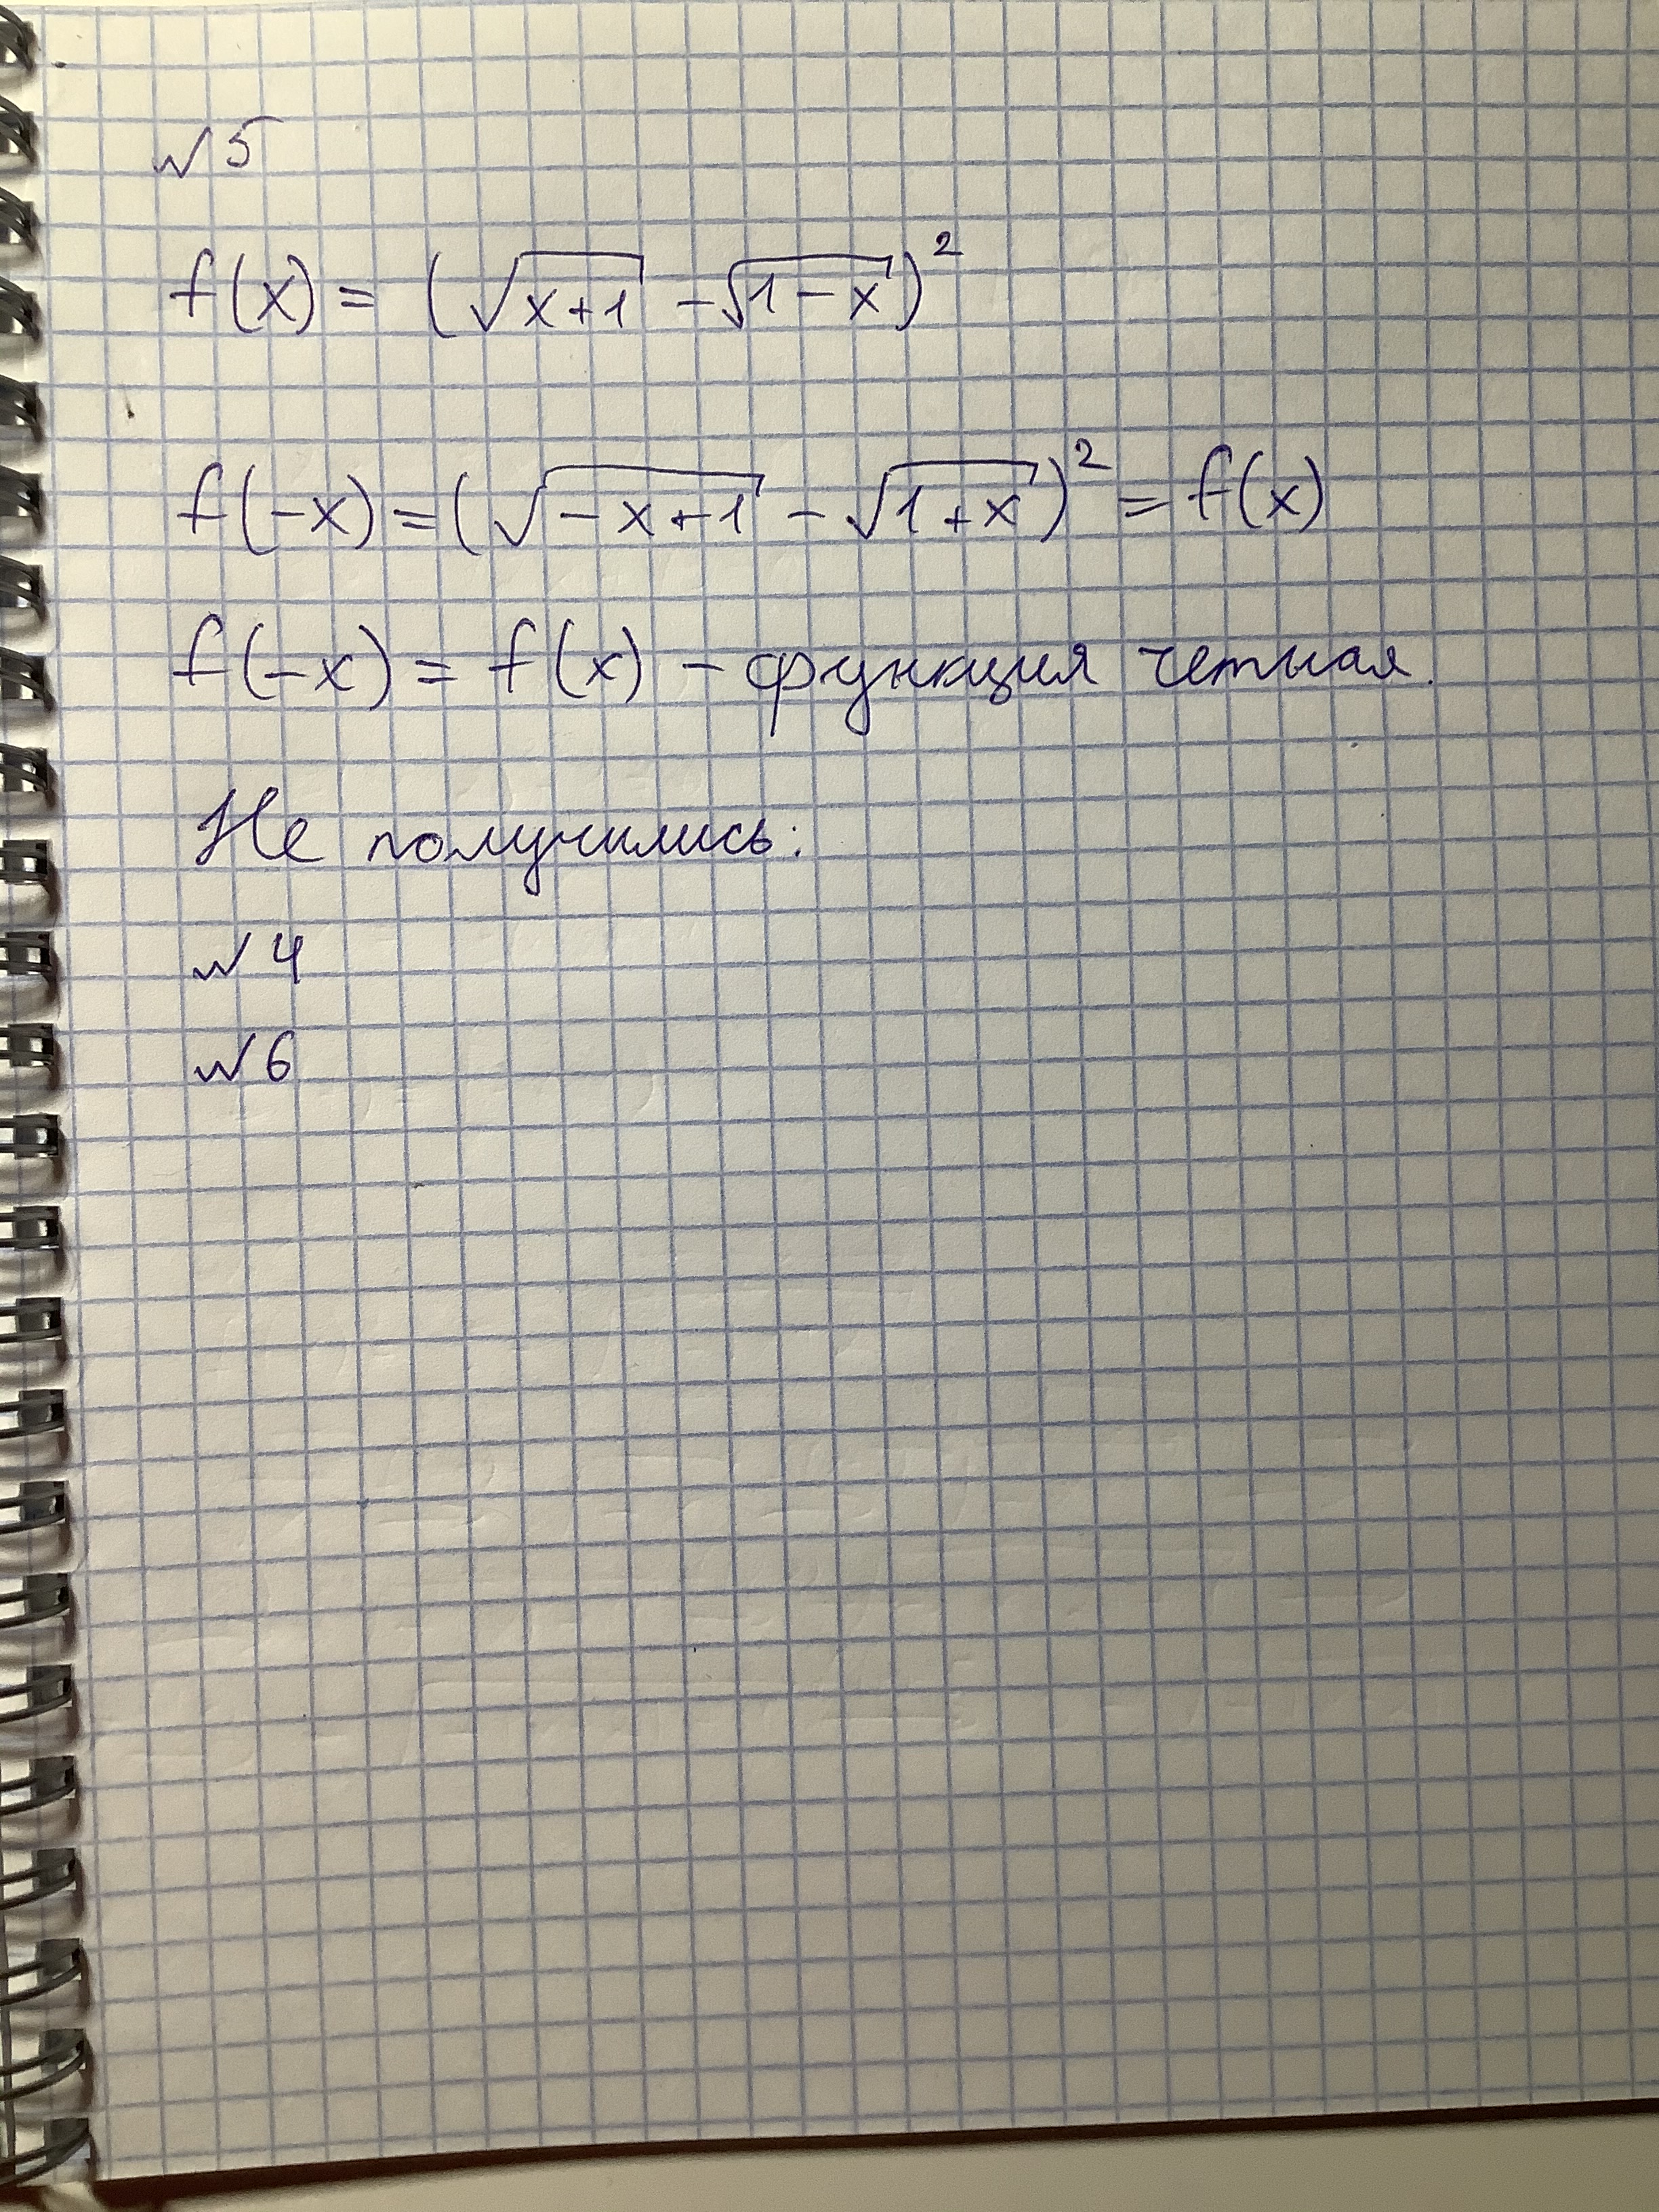 №5
f(x) = (√x+1 - √1-x)²
f(-x) = (√-x+1 - √1+x)² = f(x)
f(-x) = f(x) - функция четная.
Не получились:
№4
№6